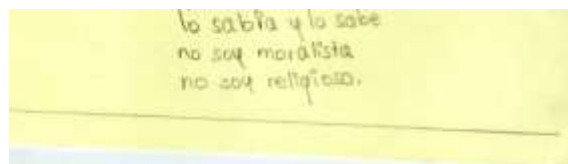 lo sabía y lo sabe
no soy moralista
no soy religioso.